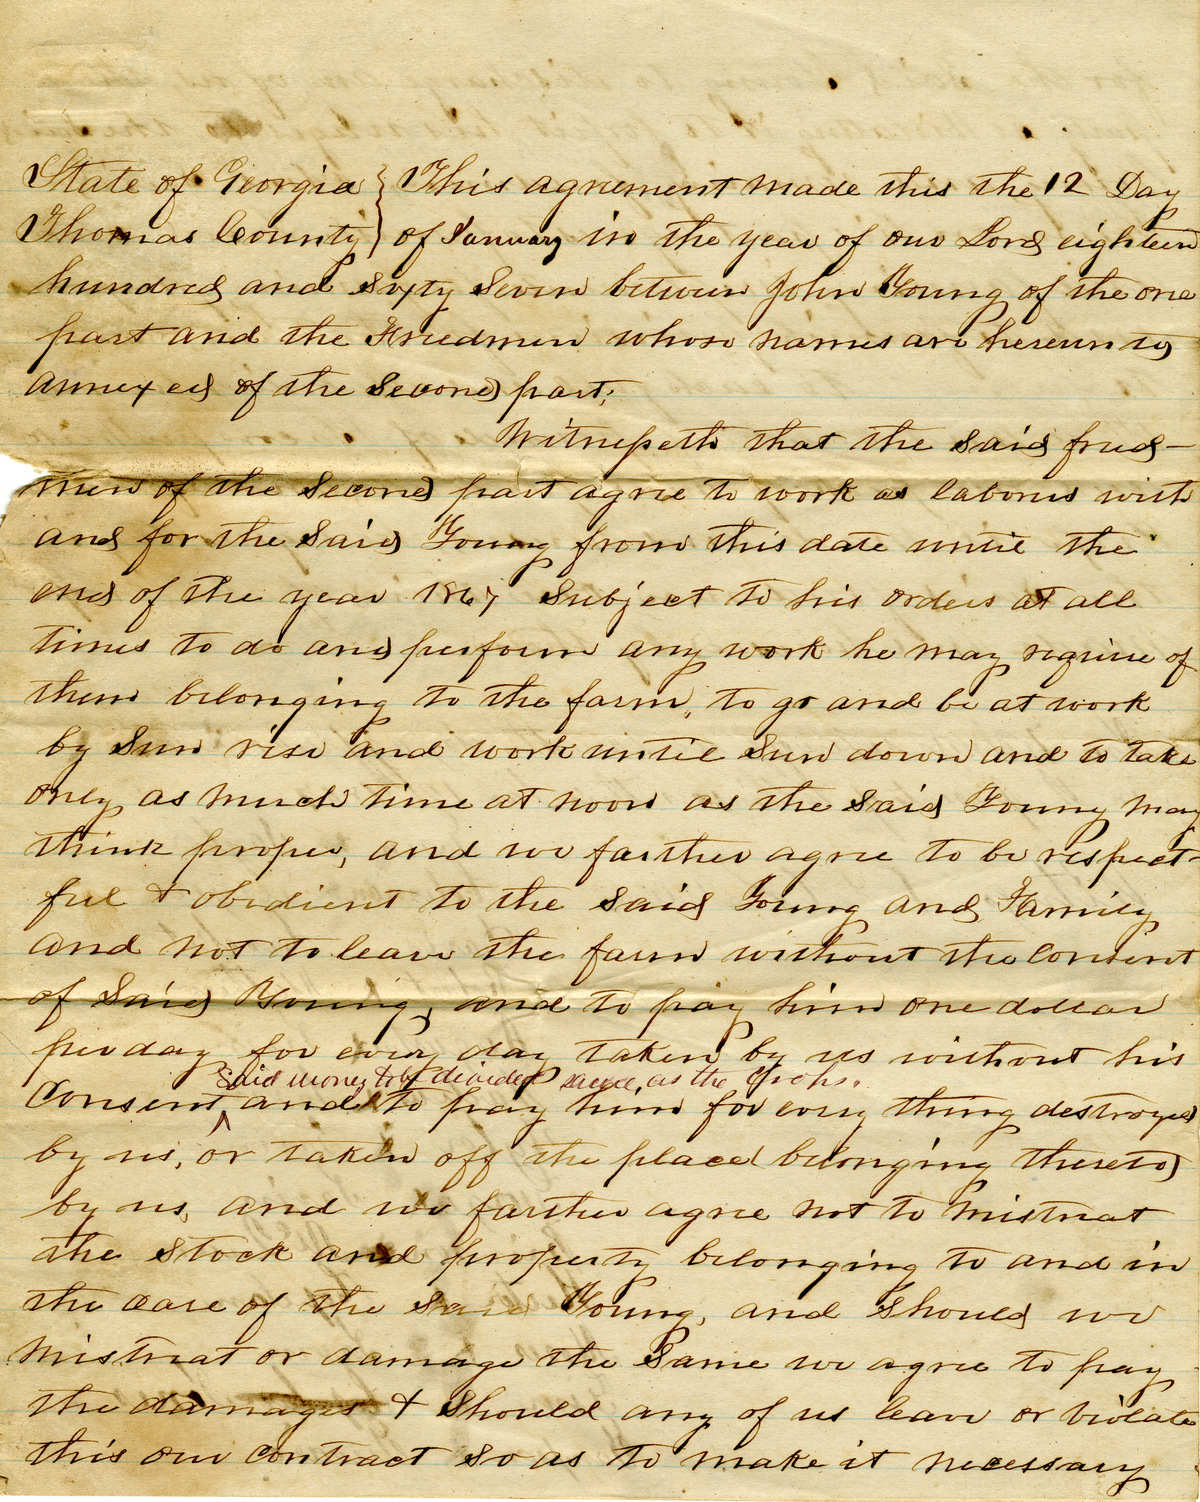 State of Georgia } This agreement made this the 12 Day
Thomas County } of January in the year of our Lord eighteen
hundred and Sixty Seven between John Young of the one
part and the Freedmen whose names are hereunto
annexed of the Second part;
Witnesseth that the Said freed-
men of the Second part agree to work as laborers with
and for the Said Young from this date until the
end of the year 1867 Subject to his orders at all
times to do and perform any work he may require of
them belonging to the farm, to go and be at work
by Sun rise and work until Sun down and to take
only as much time at noon as the Said Young may
think proper, and we farther agree to be respect-
ful & obedient to the Said Young and Family
and not to leave the farm without the Consent
of Said Young, and to pay him one dollar
per day for every day taken by us without his
Said money to be divided same as the Crops.
Consent, ^ and to pay him for every thing destroyed
by us, or taken off the place (belonging thereto)
by us, and we farther agree not to mistreat
the Stock and property belonging to and in
the care of the Said Young, and Should we
mistreat or damage the Same we agree to pay
the damages & Should any of us leave or violate
this our Contract So as to make it necessary